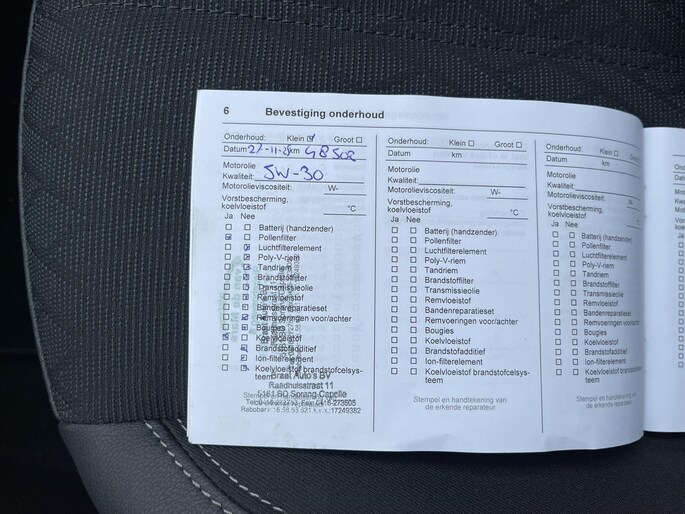 6 Bevestiging onderhoud
Onderhoud: Klein Groot
Datum km 48502
Motorolie
Kwaliteit: 5W-30
Motorolieviscositeit: W-
Vorstbescherming,
koelvloeistof °C
Ja Nee
Batterij (handzender)
Pollenfilter
Luchtfilterelement
Poly-V-riem
Tandriem
Brandstoffilter
Transmissieolie
Remvloeistof
Bandenreparatieset
Remvoeringen voor/achter
Bougies
Koelvloeistof
Brandstofadditief
Ion-filterelement
Koelvloeistof brandstofcelsys-
teem
Braat Auto's BV
Raadhuisstraat 11
5161 BD Sprang-Capelle
Onderhoud: Klein Groot
Datum km
Motorolie
Kwaliteit:
Motorolieviscositeit: W-
Vorstbescherming,
koelvloeistof °C
Ja Nee
Batterij (handzender)
Pollenfilter
Luchtfilterelement
Poly-V-riem
Tandriem
Brandstoffilter
Transmissieolie
Remvloeistof
Bandenreparatieset
Remvoeringen voor/achter
Bougies
Koelvloeistof
Brandstofadditief
Ion-filterelement
Koelvloeistof brandstofcelsys-
teem
Stempel en handtekening van
de erkende reparateur
Onderhoud: Klein Groot
Datum km
Motorolie
Kwaliteit:
Motorolieviscositeit:
Vorstbescherming,
koelvloeistof
Ja Nee
Batterij (handzender)
Pollenfilter
Luchtfilterelement
Poly-V-riem
Tandriem
Brandstoffilter
Transmissieolie
Remvloeistof
Bandenreparatieset
Remvoeringen voor/achter
Bougies
Koelvloeistof
Brandstofadditief
Ion-filterelement
Koelvloeistof brandstofcelsys-
teem
Stempel en handtekening van
de erkende reparateur